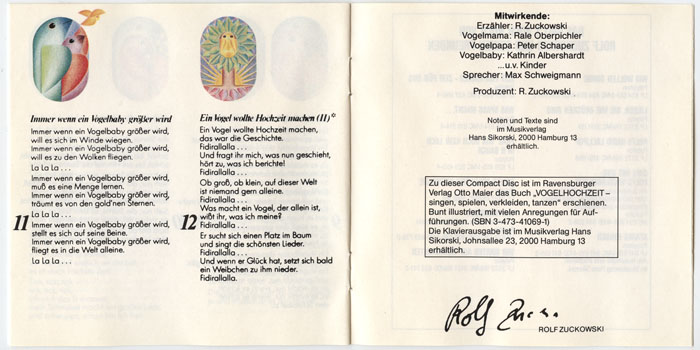 Immer wenn ein Vogelbaby größer wird
Immer wenn ein Vogelbaby größer wird,
will es sich im Winde wiegen.
Immer wenn ein Vogelbaby größer wird,
will es zu den Wolken fliegen.
La la la . . .
Immer wenn ein Vogelbaby größer wird,
muß es eine Menge lernen.
Immer wenn ein Vogelbaby größer wird,
träumt es von den gold'nen Sternen.
La la la . . .
11 Immer wenn ein Vogelbaby größer wird,
stellt es sich auf seine Beine.
Immer wenn ein Vogelbaby größer wird,
fliegt es in die Welt alleine.
La la la . . .
Ein Vogel wollte Hochzeit machen (II)*
Ein Vogel wollte Hochzeit machen,
das war die Geschichte.
Fidirallala . . .
Und fragt ihr mich, was nun geschieht,
hört zu, was ich berichte!
Fidirallala . . .
Ob groß, ob klein, auf dieser Welt
ist niemand gern alleine.
Fidirallala . . .
Was macht ein Vogel, der allein ist,
wißt ihr, was ich meine?
12 Fidirallala . . .
Er sucht sich einen Platz im Baum
und singt die schönsten Lieder.
Fidirallala . . .
Und wenn er Glück hat, setzt sich bald
ein Weibchen zu ihm nieder.
Fidirallala.
Mitwirkende:
Erzähler: R. Zuckowski
Vogelmama: Rale Oberpichler
Vogelpapa: Peter Schaper
Vogelbaby: Kathrin Albershardt
...u.v. Kinder
Sprecher: Max Schweigmann
Produzent: R. Zuckowski.
Noten und Texte sind
im Musikverlag
Hans Sikorski, 2000 Hamburg 13
erhältlich.
Zu dieser Compact Disc ist im Ravensburger
Verlag Otto Maier das Buch „VOGELHOCHZEIT –
singen, spielen, verkleiden, tanzen" erschienen.
Bunt illustriert, mit vielen Anregungen für Auf-
führungen. (SBN 3-473-41069-1)
Die Klavierausgabe ist im Musikverlag Hans
Sikorski, Johnsallee 23, 2000 Hamburg 13
erhältlich.
Rolf Zuck.
ROLF ZUCKOWSKI